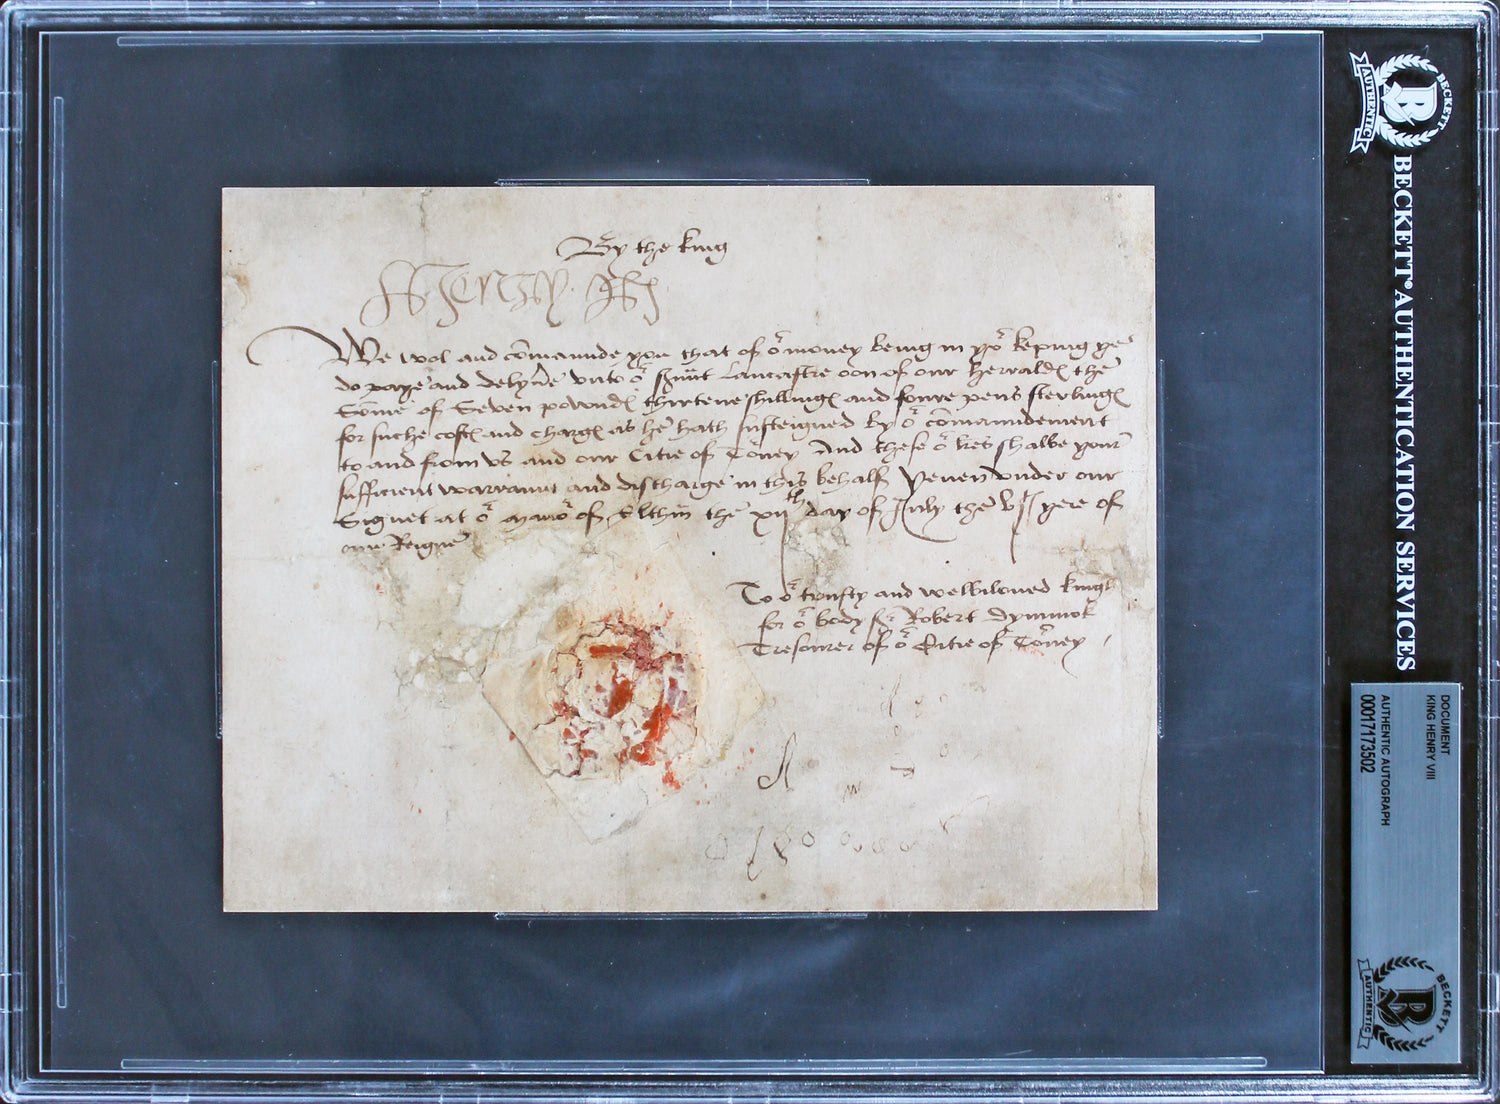 By the king
Henry R
We wol and comaunde you that of or money being in yor keping ye
do paye and delyver unto or srvunt Lancastre oon of our herraldes the
Somme of Seven powndes thirtene shillinges and foure pens sterlinges
for suche costes and charges as he hath susteigned by or comaundement
to and from us and our Citie of Torney And these or lres shalbe your
sufficient warraunt and discharge in this behalf Yeven under our
Signet at or manor of Elthm the xijth day of July the vj yere of
our Reigne
To or trusty and welbiloved knight
for or body Sr Robert Dymmok
Tresourer of or Citie of Torney
BECKETT
AUTHENTIC
BECKETT AUTHENTICATION SERVICES
DOCUMENT
KING HENRY VIII
AUTHENTIC AUTOGRAPH
00017173502
BECKETT
AUTHENTIC